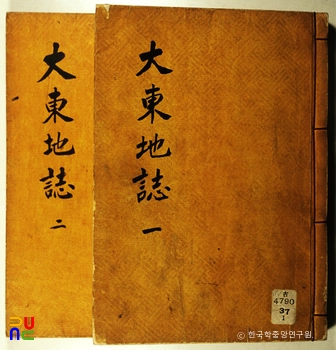 大東地誌 二
大東地誌 一
古
4790
37
1
© 한국학중앙연구원